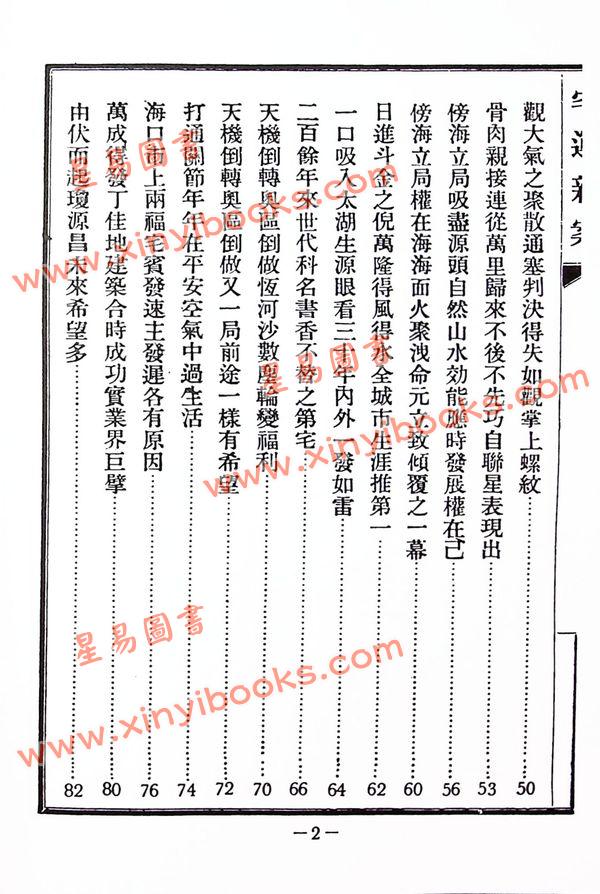 宅運新案
觀大氣之聚散通塞判決得失如觀掌上螺紋 50
骨肉親接連從萬里歸來不後不先巧自聯星表現出 53
傍海立局吸盡源頭自然山水効能應時發展權在己 56
傍海立局權在海海而火聚洩命元立致傾覆之一幕 60
日進斗金之倪萬隆得風得水全城市生涯推第一 62
一口吸入太湖生源眼看三十年內外一發如雷 64
二百餘年來世代科名書香不替之第宅 66
天機倒轉奧區倒做恆河沙數塵輪變福利 70
天機倒轉奧區倒做又一局前途一樣有希望 72
打通關節年年在平安空氣中過生活 74
海口市上兩福宅賓發速主發遲各有原因 76
萬成得發丁佳地建築合時成功實業界巨擘 80
由伏而起瓊源昌未來希望多 82
—2—
星易圖書
www.xinyibooks.com
星易圖書
www.xinyibooks.com
星易圖書
www.xinyibooks.com